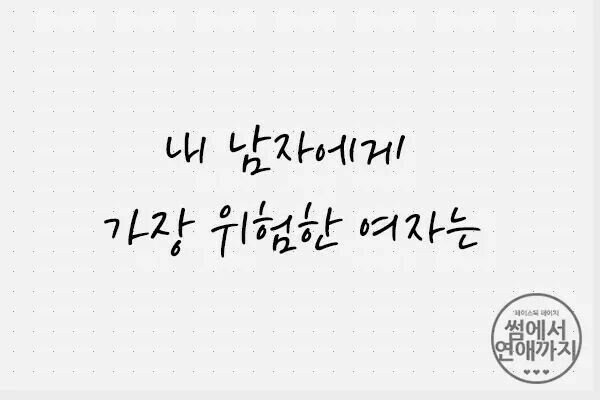 내 남자에게
가장 위험한 여자는
페이스북 페이지
썸에서
연애까지